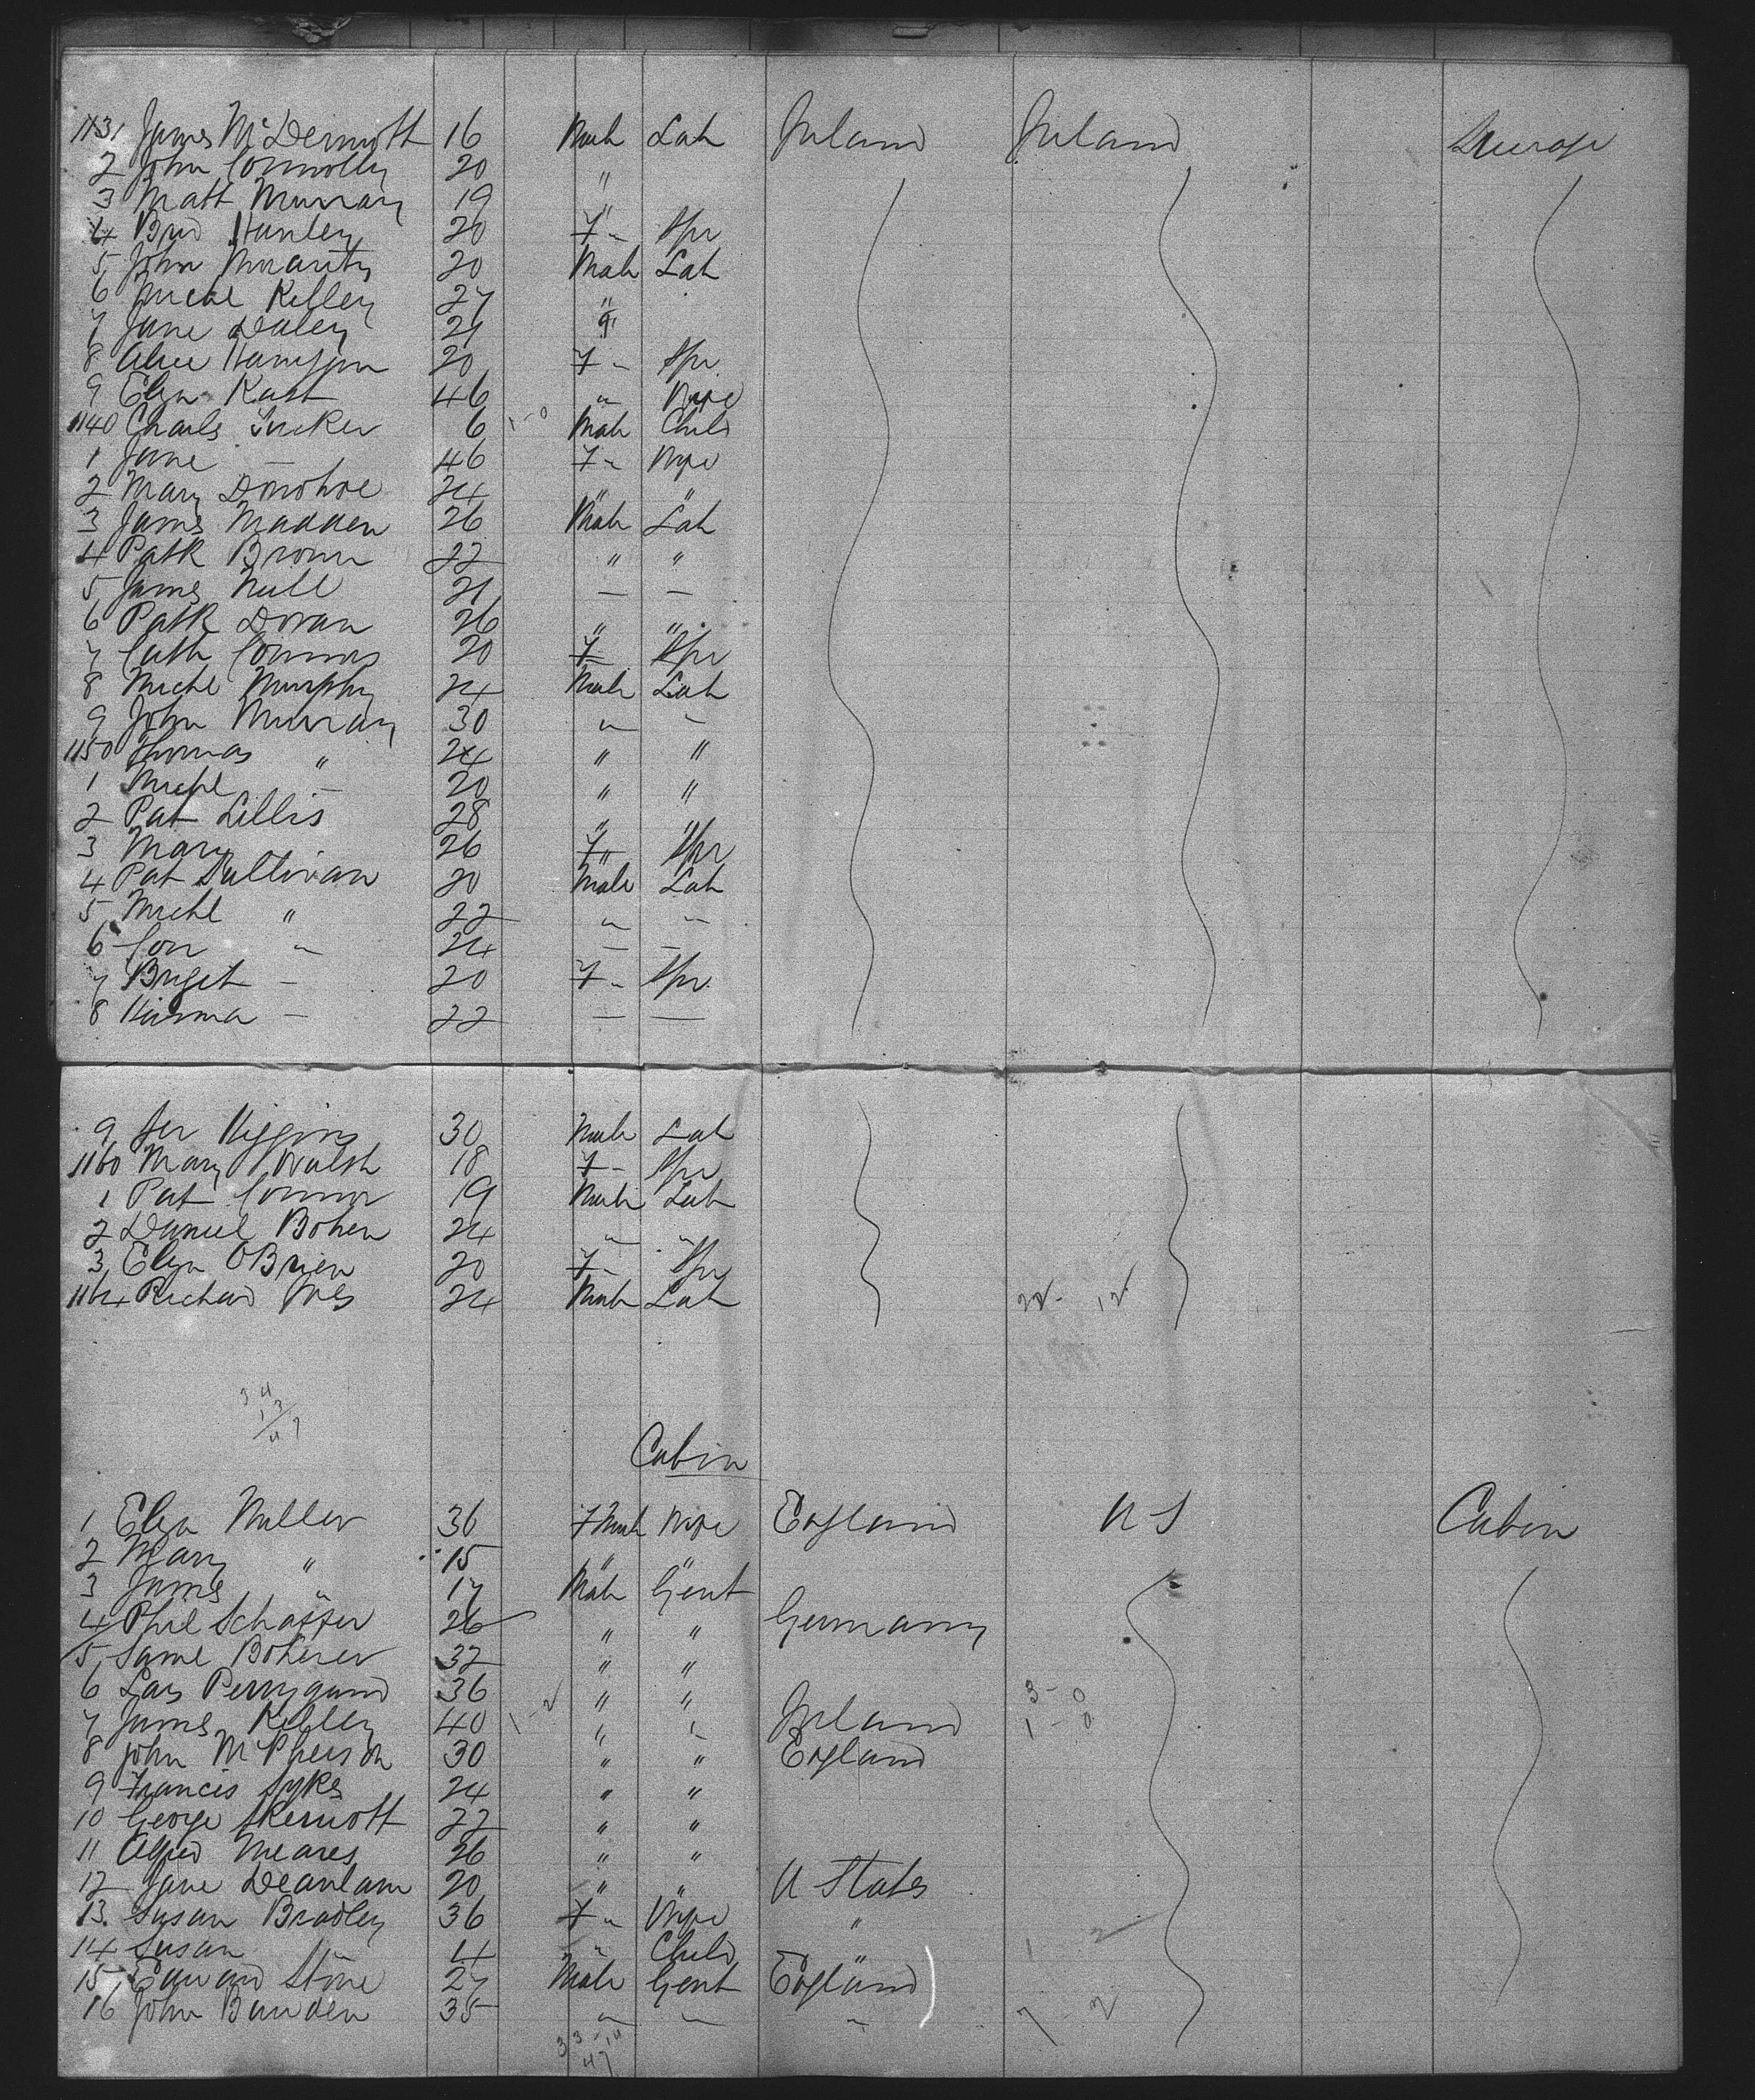 1131 James McDermott 16 Male Lab Ireland Ireland Steerage
2 John Connolly 20 "
3 Matt Murray 19 "
4 Brid Hanley 20 F " Spr
5 John Moriarity 20 Male Lab
6 Michl Kelley 27 "
7 Jane Daley 21 "
8 Alice Hampson 20 F " Spr
9 Eliza Kast 46 " Wife
1140 Charls Tucker 6 Male Child
1 Jane — 46 F " Wife
2 Mary Donohoe 24 " "
3 James Madden 26 Male Lab
4 Patk Brown 22 " "
5 James Null 21 — —
6 Patk Doran 26 " "
7 Cath Connors 20 F Spr
8 Michl Murphy 24 Male Lab
9 John Murray 30 " "
1150 Thomas " 24 " "
1 Michl — 20 " "
2 Pat Lillis 28 " "
3 Mary 26 F " Spr
4 Pat Sullivan 20 Male Lab
5 Michl " 22 " "
6 Con " 24 — —
7 Briget — 20 F " Spr
8 — 22 — —
9 Jer Higgins 30 Male Lab
1160 Mary Walsh 18 F " Spr
1 Pat Connor 19 Male Lab
2 Daniel Bohen 24 " "
3 Eliza OBrien 20 F " Spr
1164 Richard Ives 24 Male Lab
34
13
47
Cabin
1 Eliza Muller 36 FMale Wife England U S Cabin
2 Mary " 15 " "
3 James " 17 Male Gent
4 Phil Schaffer 26 " " Germany
5 Saml Boherer 32 " "
6 Lars Perrygund 36 " "
7 James Kelley 40 " " Ireland
8 John McPherson 30 " " England
9 Francis Sykes 24 " "
10 George Skerrott 22 " "
11 Alfred Meares 26 " "
12 Jane Deanlam 20 " " U States
13 Susan Bradley 36 F " Wife "
14 Susan " 4 " Child "
15 Edward Stone 27 Male Gent England
16 John Bunden 35 " " "